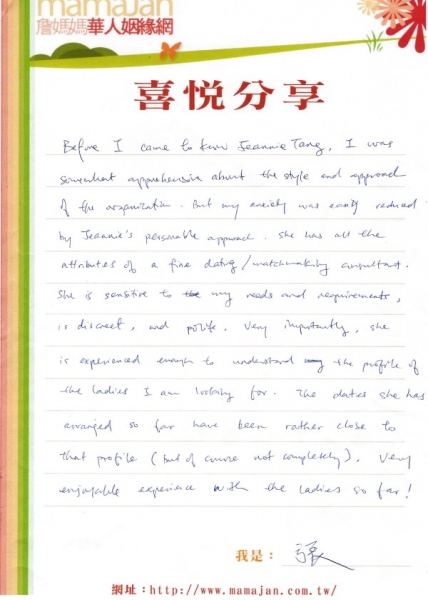 mamaJan
詹媽媽華人姻緣網
喜悅分享
Before I came to know Jeannie Tang, I was
somewhat apprehensive about the style and approach
of the organization. But my anxiety was easily reduced
by Jeannie's personable approach. She has all the
attributes of a fine dating/matchmaking consultant.
She is sensitive to my needs and requirements,
is discreet, and polite. Very importantly, she
is experienced enough to understand the profile of
the ladies I am looking for. The dates she has
arranged so far have been rather close to
that profile (but of course not completely). Very
enjoyable experience with the ladies so far!
我是：張
網址：http://www.mamajan.com.tw/